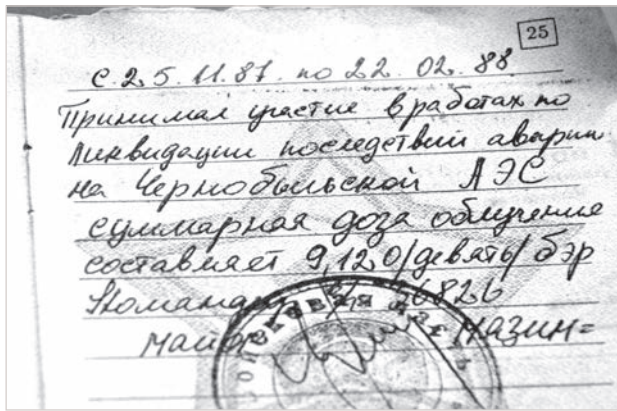 25
с. 25. 11. 87. по 22. 02. 88
Принимал участие в работах по
ликвидации последствий аварии
на Чернобыльской АЭС
суммарная доза облучения
составляет 9,120/девять/бэр
Командир в/ч 26826
майор МАЗИН=